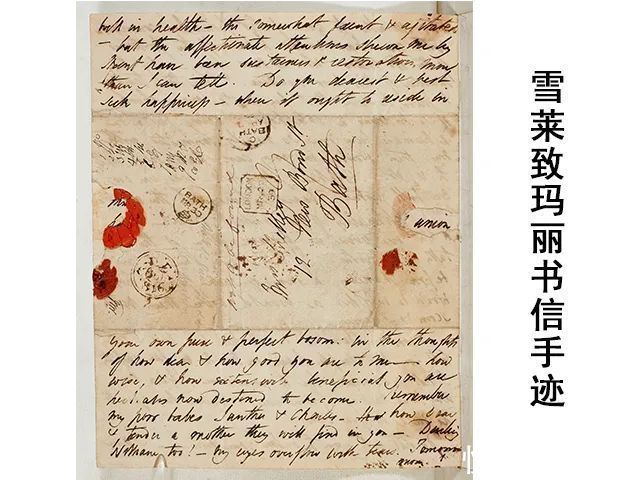 both in health – tho somewhat faint & agitated
– but the affectionate attentions shewn me by
Hunt have been sustainers & restoratives more
than I can tell. Do you dearest & best
seek happiness – where it ought to reside in
BATH
LONDON
Mrs Shelley
12 New Bond St
Bath
BATH
union
your own pure & perfect bosom: in the thoughts
of how dear & how good you are to me – how
wise, & how extensively beneficial you are
perhaps now destined to become. Remember
my poor babes Ianthe & Charles – how dear
& tender a mother they will find in you – Darling
William too! – my eyes overflow with tears. Tomorrow
雪莱致玛丽书信手迹